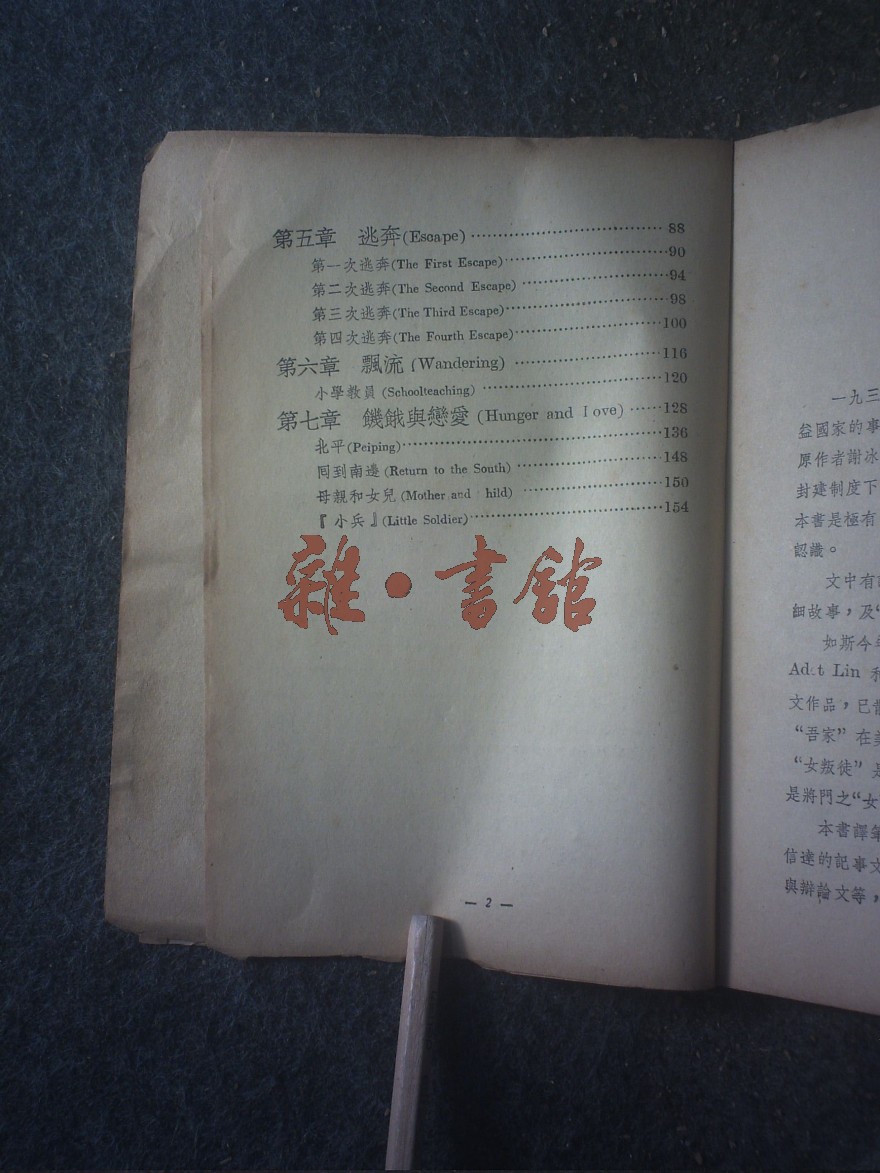 第五章 逃奔(Escape) ································ 88
第一次逃奔(The First Escape)·························90
第二次逃奔(The Second Escape) ·······················94
第三次逃奔(The Third Escape)·························98
第四次逃奔(The Fourth Escape)·······················100
第六章 飄流 (Wandering) ·························116
小學教員 (Schoolteaching) ····························120
第七章 饑餓與戀愛 (Hunger and I ove) ······128
北平(Peiping)·········································136
囘到南邊(Return to the South) ························148
母親和女兒(Mother and hild) ························150
『小兵』(Little Soldier)······························154
雜·書舘
— 2 —
一九三
益國家的事
原作者謝冰
封建制度下
本書是極有
認識。
文中有
細故事，及“
如斯今
Ad t Lin
文作品，已
“吾家”在美
“女叛徒”是
是將門之“女
本書譯筆
信達的記事文
與辯論文等，